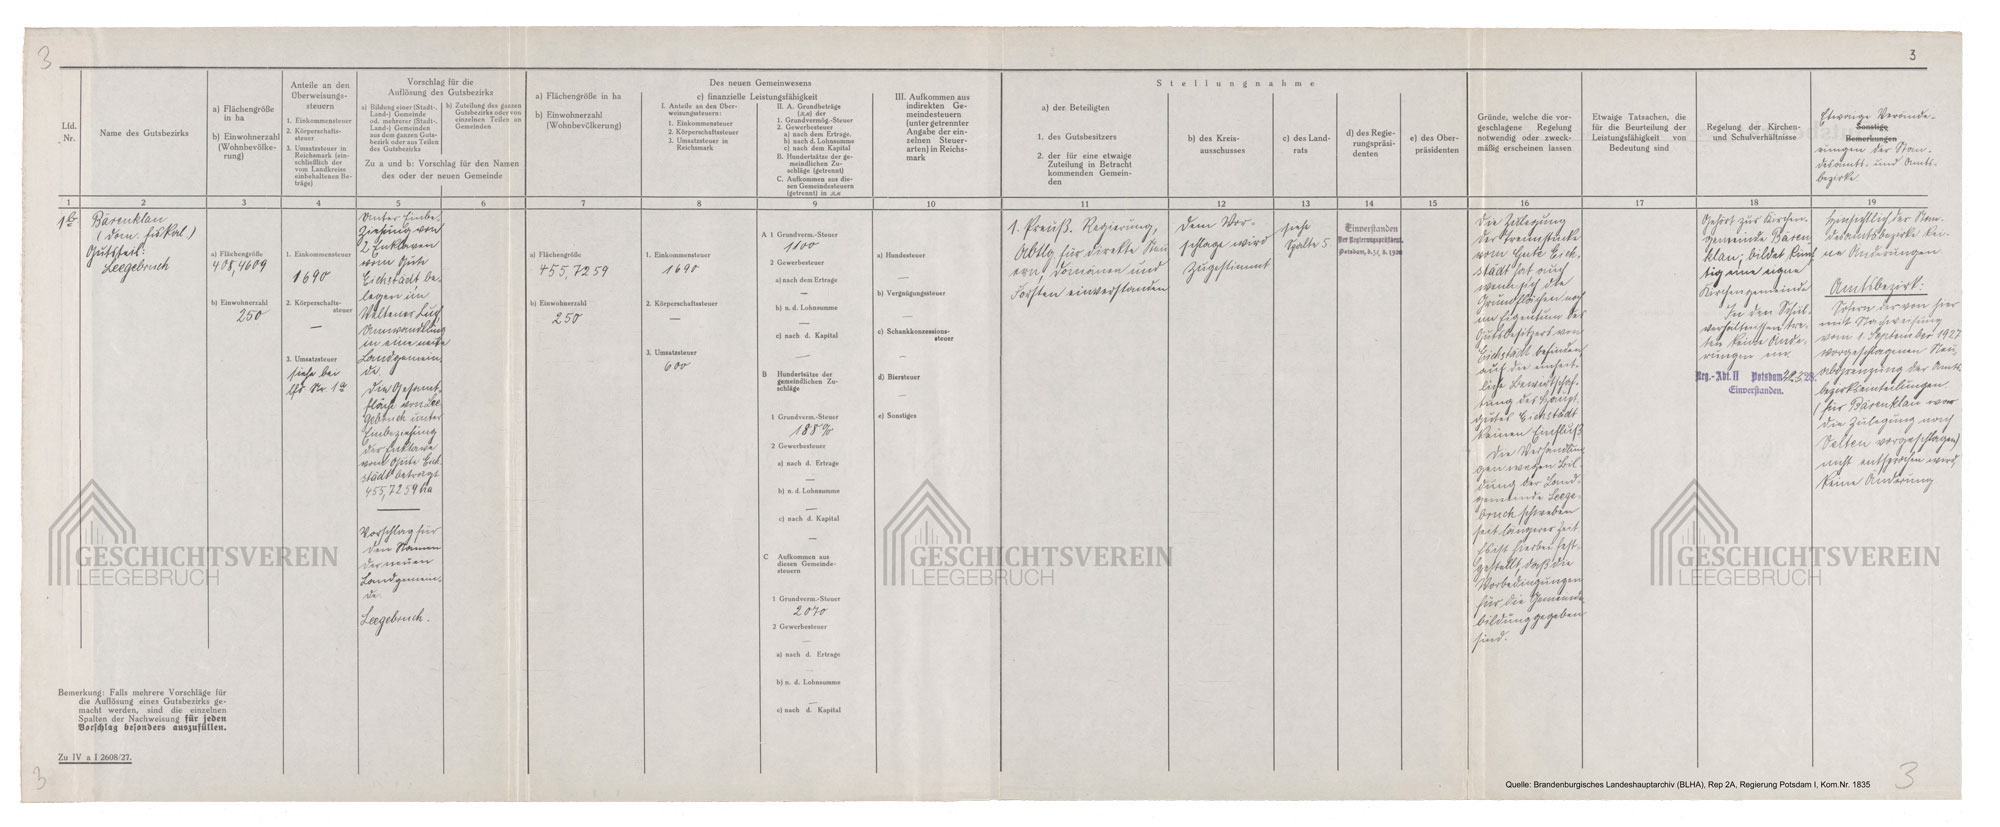 3
3
Lfd.
Nr.
Name des Gutsbezirks
a) Flächengröße
in ha
b) Einwohnerzahl
(Wohnbevölke-
rung)
Anteile an den
Überweisungs-
steuern
1. Einkommensteuer
2. Körperschafts-
steuer
3. Umsatzsteuer in
Reichsmark (ein-
schließlich der
vom Landkreise
einbehaltenen Be-
träge)
Vorschlag für die
Auflösung des Gutsbezirks
a) Bildung einer (Stadt-,
Land-) Gemeinde
od. mehrerer (Stadt-,
Land-) Gemeinden
aus dem ganzen Guts-
bezirk oder aus Teilen
des Gutsbezirks
b) Zuteilung des ganzen
Gutsbezirks oder von
einzelnen Teilen an
Gemeinden
Zu a und b: Vorschlag für den Namen
des oder der neuen Gemeinde
Des neuen Gemeinwesens
a) Flächengröße in ha
b) Einwohnerzahl
(Wohnbevölkerung)
c) finanzielle Leistungsfähigkeit
I. Anteile an den Über-
weisungssteuern:
1. Einkommensteuer
2. Körperschaftssteuer
3. Umsatzsteuer in
Reichsmark
II. A. Grundbeträge
(R.M) der
1. Grundvermög.-Steuer
2. Gewerbesteuer
a) nach dem Ertrage.
b) n. d. Lohnsumme
c) nach dem Kapital
B. Hundertsätze der ge-
meindlichen Zu-
schläge (getrennt)
C. Aufkommen aus die-
sen Gemeindesteuern
(getrennt) in R.M
III. Aufkommen aus
indirekten Ge-
meindesteuern
(unter getrennter
Angabe der ein-
zelnen Steuer-
arten) in Reichs-
mark
Stellungnahme
a) der Beteiligten
1. des Gutsbesitzers
2. der für eine etwaige
Zuteilung in Betracht
kommenden Gemein-
den
b) des Kreis-
ausschusses
c) des Land-
rats
d) des Regie-
rungspräsi-
denten
e) des Ober-
präsidenten
Gründe, welche die vor-
geschlagene Regelung
notwendig oder zweck-
mäßig erscheinen lassen
Etwaige Tatsachen, die
für die Beurteilung der
Leistungsfähigkeit von
Bedeutung sind
Regelung der Kirchen-
und Schulverhältnisse
Etwaige Verände-
Sonstige
Bemerkungen
rungen der Stan-
desamts- und Amts-
bezirke.
1 2 3 4 5 6 7 8 9 10 11 12 13 14 15 16 17 18 19
1b
Bärenklau
(dom. fiskal.)
Gutsteil:
Leegebruch
a) Flächengröße
408,4609
b) Einwohnerzahl
250
1. Einkommensteuer
1690
2. Körperschafts-
steuer
—
3. Umsatzsteuer
siehe bei
lfd Nr. 1a
Unter Einbe-
ziehung von
2 Enklaven
vom Gute
Eichstädt, be-
legen im
Veltener Luch
Umwandlung
in eine neue
Landgemein-
de.
Die Gesamt-
fläche von Lee-
gebruch unter
Einbeziehung
der Enklave
vom Gute Eich-
städt beträgt
455,7259 ha
Vorschlag für
den Namen
der neuen
Landgemein-
de.
Leegebruch.
a) Flächengröße
455,7259
b) Einwohnerzahl
250
1. Einkommensteuer
1690
2. Körperschaftssteuer
—
3. Umsatzsteuer
600
A 1 Grundverm.-Steuer
1100
2 Gewerbesteuer
a) nach dem Ertrage
—
b) n. d. Lohnsumme
—
c) nach d. Kapital
—
B Hundertsätze der
gemeindlichen Zu-
schläge
1 Grundverm.-Steuer
188%
2 Gewerbesteuer
a) nach d. Ertrage
—
b) n. d. Lohnsumme
—
c) nach d. Kapital
—
C Aufkommen aus
diesen Gemeinde-
steuern
1 Grundverm.-Steuer
2070
2 Gewerbesteuer
a) nach d. Ertrage
—
b) n. d. Lohnsumme
—
c) nach d. Kapital
a) Hundesteuer
—
b) Vergnügungssteuer
—
c) Schankkonzessions-
steuer
—
d) Biersteuer
—
e) Sonstiges
1. Preuß. Regierung,
Abtlg für direkte Steu
ern, Domänen und
Forsten einverstanden
Dem Vor-
schlage wird
zugestimmt
siehe
Spalte 5
Einverstanden
Der Regierungspräsident.
Die Zulegung
der Trennstücke
vom Gute Eich-
städt hat auch
wenn sich die
Grundflächen noch
im Eigentum des
Gutsbesitzers von
Eichstädt befinden
auf die einheit-
liche Bewirtschaf-
tung des Haupt-
gutes Eichstädt
keinen Einfluß
Die Verhandlun-
gen wegen Bil-
dung der Land-
gemeinde Leege-
bruch schweben
seit längerer Zeit
Es ist hierbei fest-
gestellt, daß die
Vorbedingungen
für die Gemeinde
bildung gegeben
sind.
Gehört zur Kirchen-
gemeinde Bären
klau; bildet künf
tig eine eigne
Kirchengemeinde
In den Schul-
verhältnissen tre-
ten keine Ände-
rungen ein.
Reg.-Abt. II Potsdam
Einverstanden.
Hinsichtlich der Stan-
desamtsbezirke kei-
ne Änderungen
Amtsbezirk:
Sofern der von hier
mit Nachweisung
vom 1. September 1927
vorgeschlagenen Neu-
abgrenzung der Amts
bezirkseinteilungen
(für Bärenklau war
die Zulegung nach
Velten vorgeschlagen)
nicht entsprochen wird,
keine Änderung
GESCHICHTSVEREIN
LEEGEBRUCH
GESCHICHTSVEREIN
LEEGEBRUCH
GESCHICHTSVEREIN
LEEGEBRUCH
Bemerkung: Falls mehrere Vorschläge für
die Auflösung eines Gutsbezirks ge-
macht werden, sind die einzelnen
Spalten der Nachweisung für jeden
Vorschlag besonders auszufüllen.
Zu IV a I 2608/27.
3
3
Quelle: Brandenburgisches Landeshauptarchiv (BLHA), Rep 2A, Regierung Potsdam I, Kom.Nr. 1835